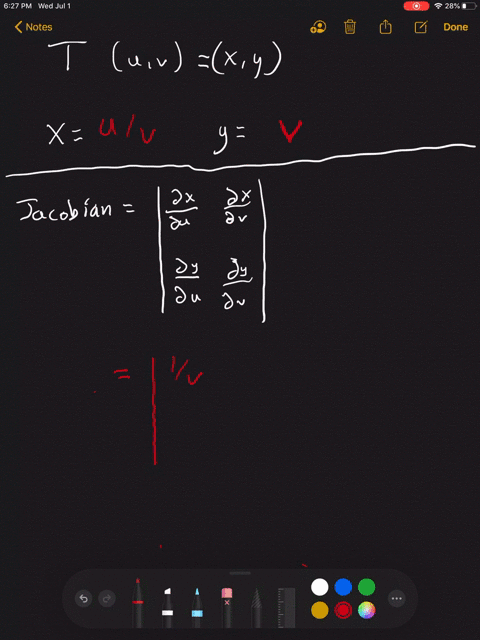 6:27 PM Wed Jul 1 28%
Notes Done
T (u,v) = (x,y)
x = u/v y = v
Jacobian = | ∂x/∂u ∂x/∂v |
| ∂y/∂u ∂y/∂v |
= | 1/v